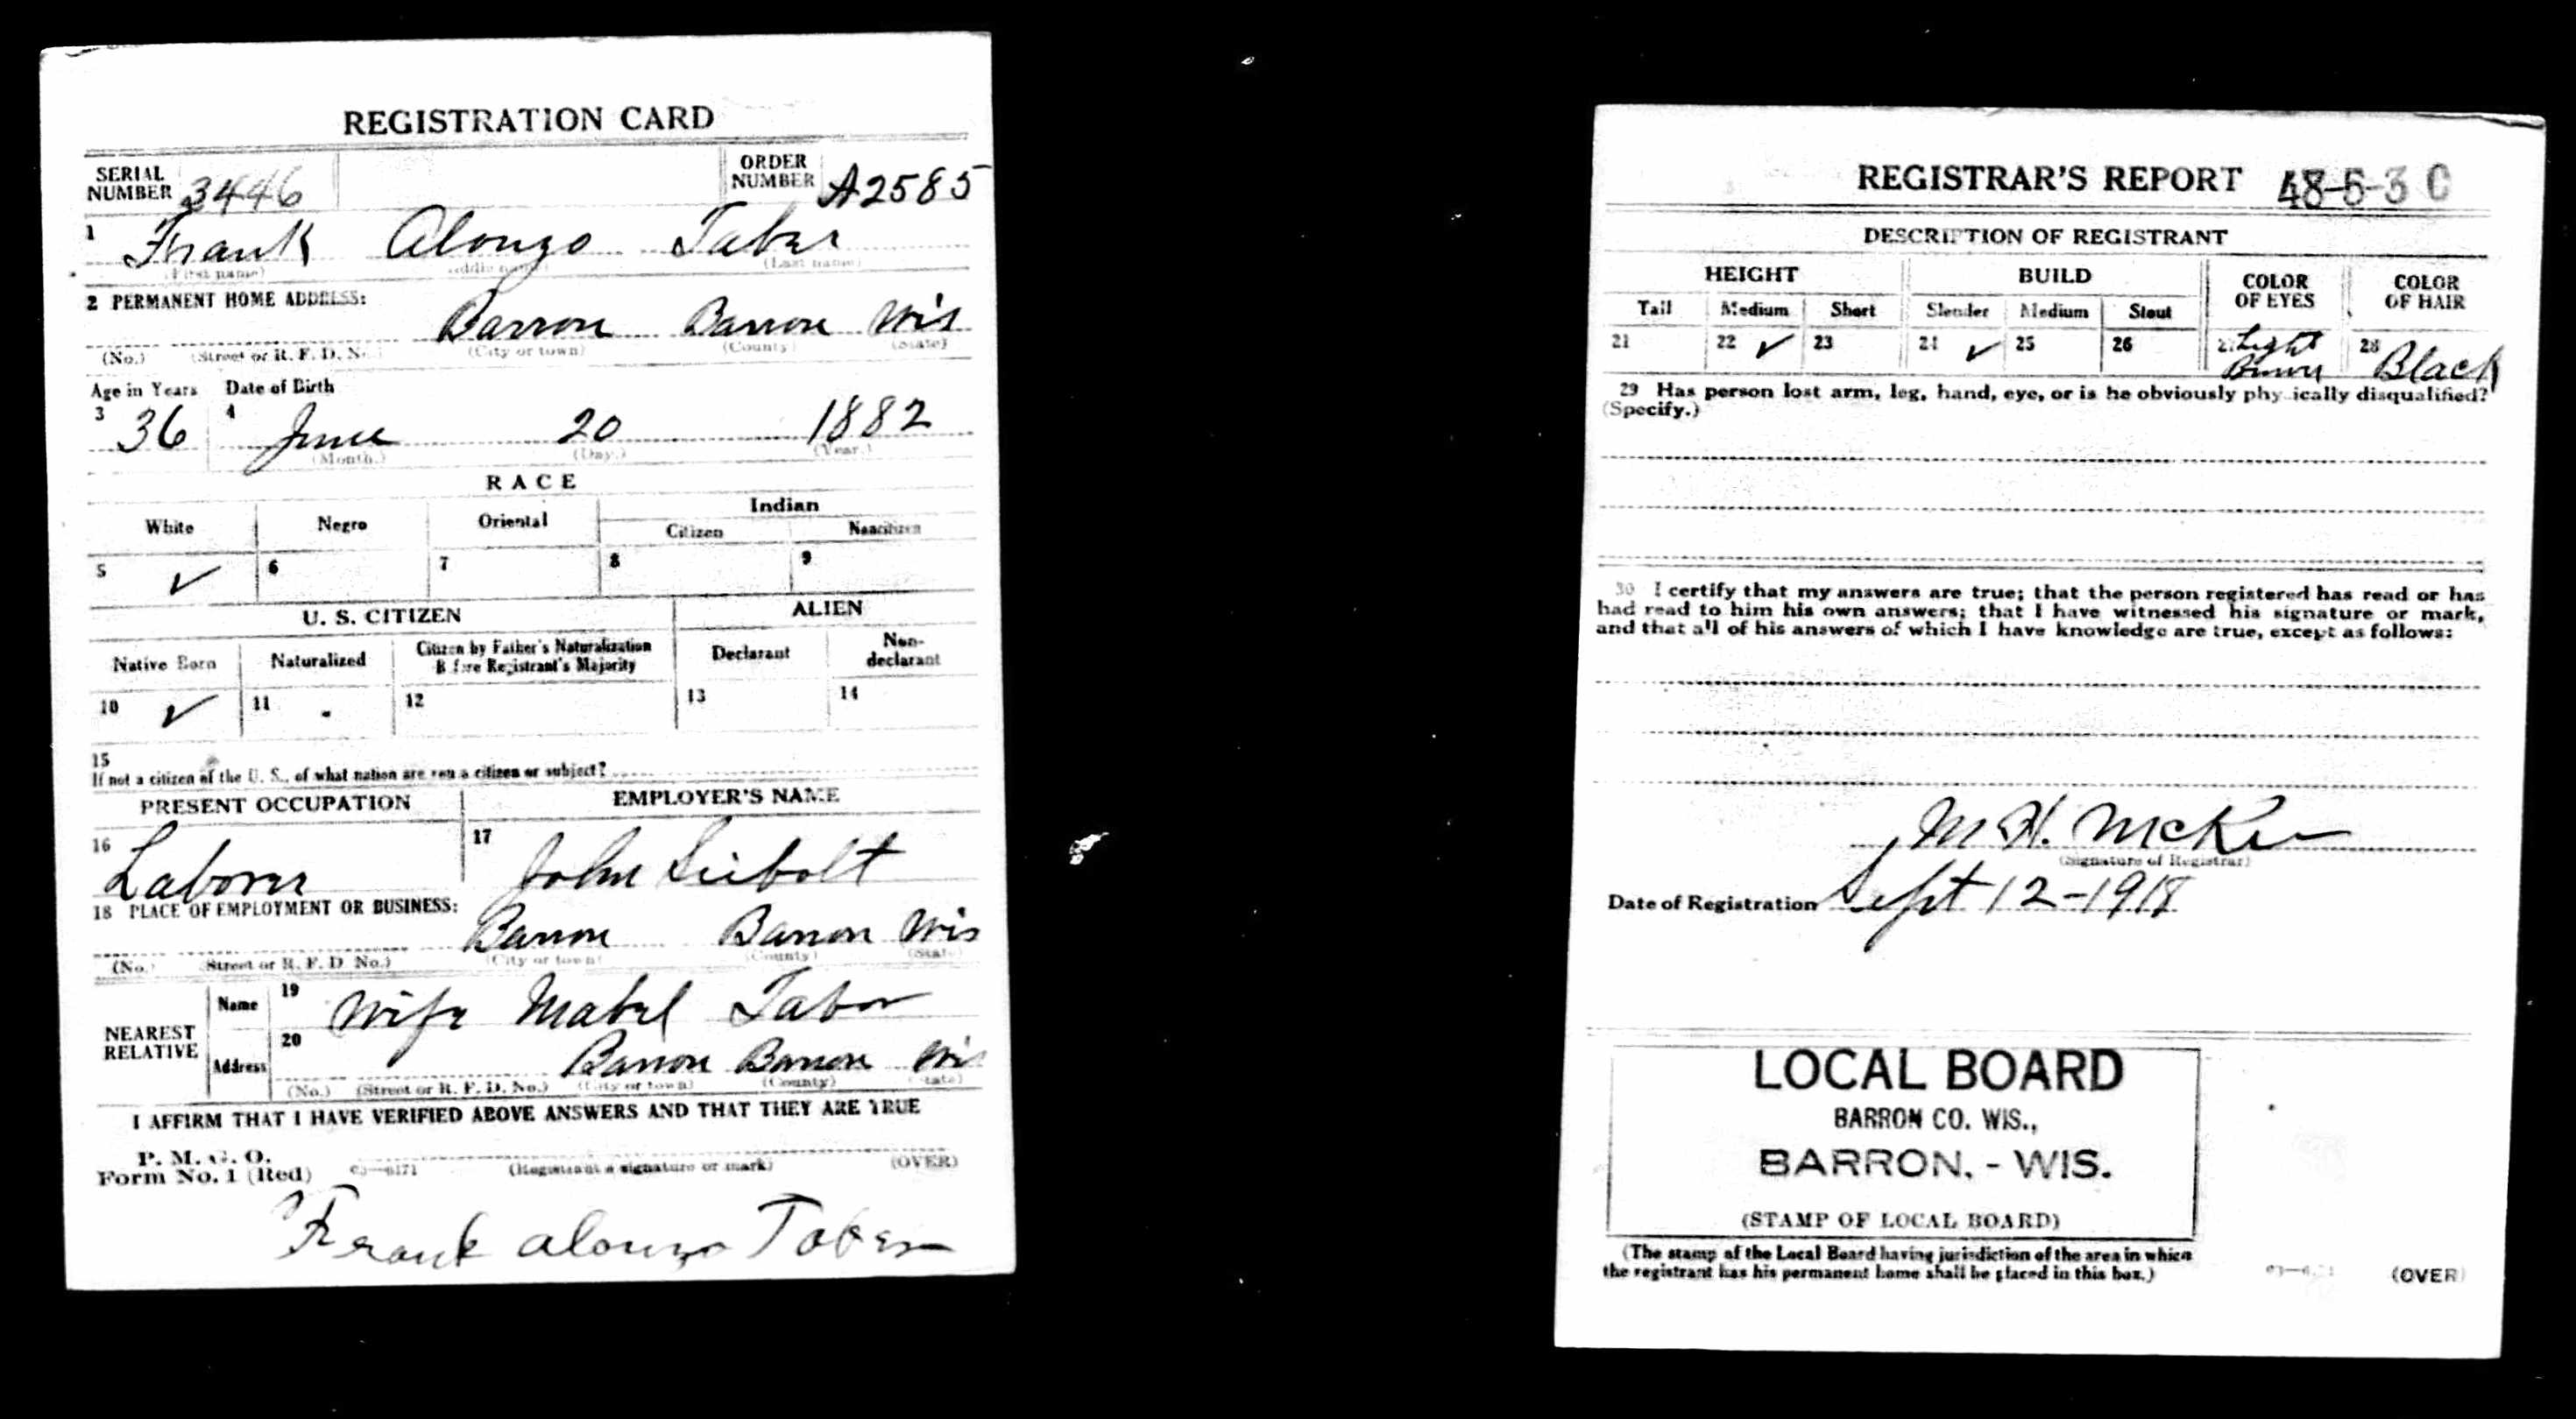 REGISTRATION CARD
SERIAL NUMBER 3446 ORDER NUMBER A2585
1 Frank Alonzo Taber
(First name) (Last name)
2 PERMANENT HOME ADDRESS:
Barron Barron Wis
(No.) (Street or R. F. D. No.) (City or town) (County) (State)
Age in Years Date of Birth
3 36 4 June 20 1882
(Month.) (Day.) (Year.)
RACE
White Negro Oriental Indian
Citizen Noncitizen
5 ✓ 6 7 8 9
U. S. CITIZEN ALIEN
Native Born Naturalized Citizen by Father's Naturalization Before Registrant's Majority Declarant Non-declarant
10 ✓ 11 12 13 14
15
If not a citizen of the U. S., of what nation are you a citizen or subject?
PRESENT OCCUPATION EMPLOYER'S NAME
16 Laborer 17 John Seibolt
18 PLACE OF EMPLOYMENT OR BUSINESS:
Barron Barron Wis
(No.) (Street or R. F. D. No.) (City or town) (County) (State)
NEAREST RELATIVE
Name 19 Wife Mabel Tabor
Address 20 Barron Barron Wis
(No.) (Street or R. F. D. No.) (City or town) (County) (State)
I AFFIRM THAT I HAVE VERIFIED ABOVE ANSWERS AND THAT THEY ARE TRUE
P. M. G. O.
Form No. 1 (Red) (Registrant's signature or mark) (OVER)
Frank Alonzo Taber
REGISTRAR'S REPORT 48-5-3 C
DESCRIPTION OF REGISTRANT
HEIGHT BUILD COLOR OF EYES COLOR OF HAIR
Tall Medium Short Slender Medium Stout
21 22 ✓ 23 24 ✓ 25 26 27 Light Brown 28 Black
29 Has person lost arm, leg, hand, eye, or is he obviously physically disqualified?
(Specify.)
30 I certify that my answers are true; that the person registered has read or has
had read to him his own answers; that I have witnessed his signature or mark,
and that all of his answers of which I have knowledge are true, except as follows:
M. H. McKee
(Signature of Registrar)
Date of Registration Sept 12-1918
LOCAL BOARD
BARRON CO. WIS.,
BARRON, - WIS.
(STAMP OF LOCAL BOARD)
(The stamp of the Local Board having jurisdiction of the area in which
the registrant has his permanent home shall be placed in this box.)
(OVER)